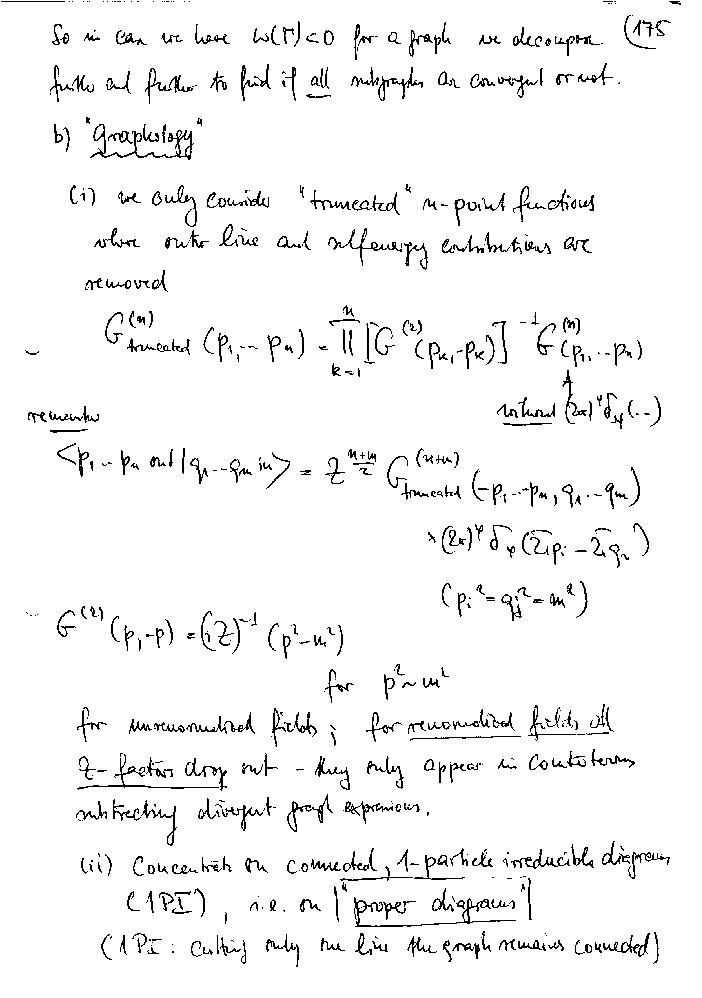 So in can we have ω(Γ)<0 for a graph we decompose (175
further and further to find if all subgraphs are convergent or not.
b) "Graphology"
(i) we only consider "truncated" n-point functions
where outer line and selfenergy contributions are
removed
G^(n)_truncated (p_1,...p_n) = ∏_{k=1}^{n} [G^(2)(p_k,-p_k)]^{-1} G^(n)(p_1,...p_n)
without (2π)^4 δ_4(...)
remember
<p_1...p_n out|q_1...q_m in> = Z^{(n+m)/2} G^(n+m)_truncated (-p_1...-p_n, q_1...q_m)
×(2π)^4 δ_4(Σp_i - Σq_i)
(p_i^2 = q_j^2 = m^2)
G^(2)(p,-p) = (iZ)^{-1} (p^2-m^2)
for p^2 ~ m^2
for unrenormalized fields; for renormalized fields all
Z-factors drop out - they only appear in counterterms
subtracting divergent graph expressions.
(ii) Concentrate on connected, 1-particle irreducible diagrams
(1PI), i.e. on "proper diagrams"
(1PI: cutting only one line the graph remains connected)